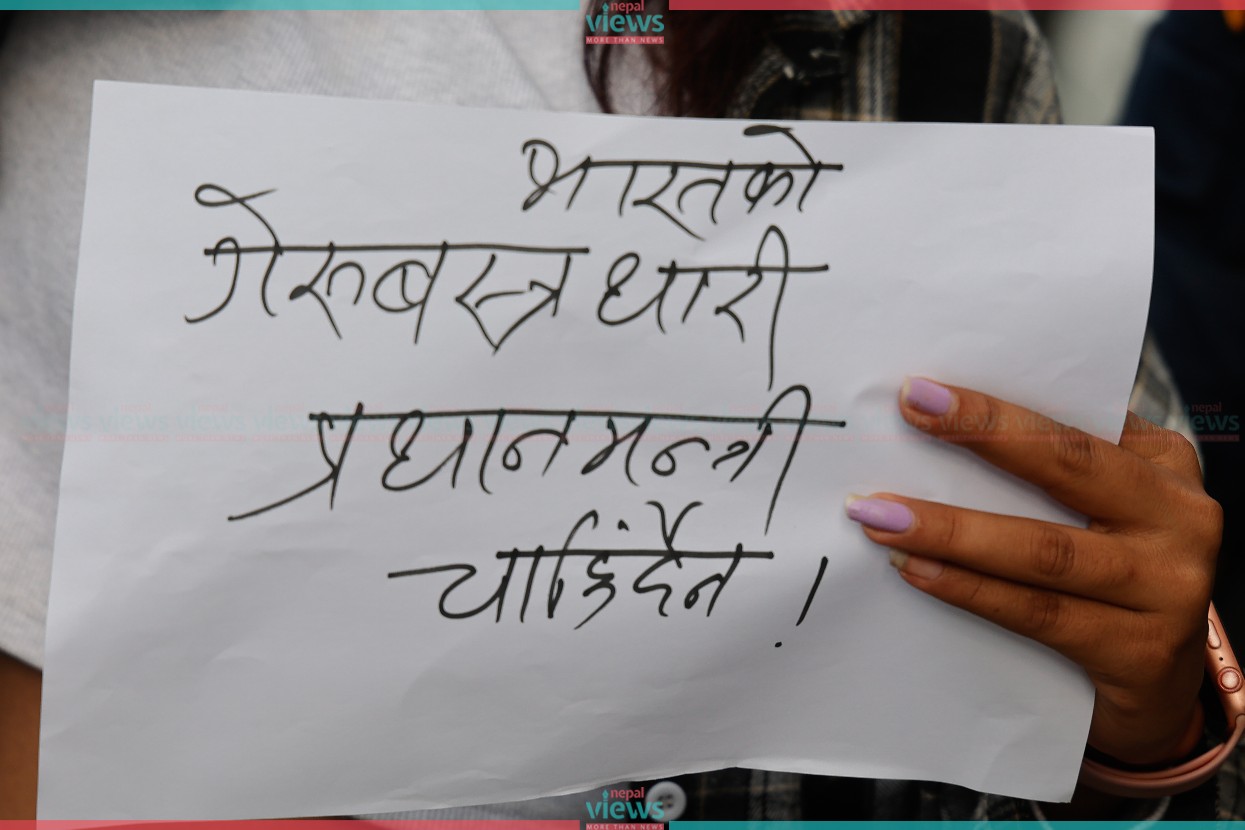 nepal
views
MORE THAN NEWS
भारतको
गेरुबस्त्र धारी
प्रधानमन्त्री
चाहिंदैन !
nepal
views
nepal
views
MORE THAN NEWS